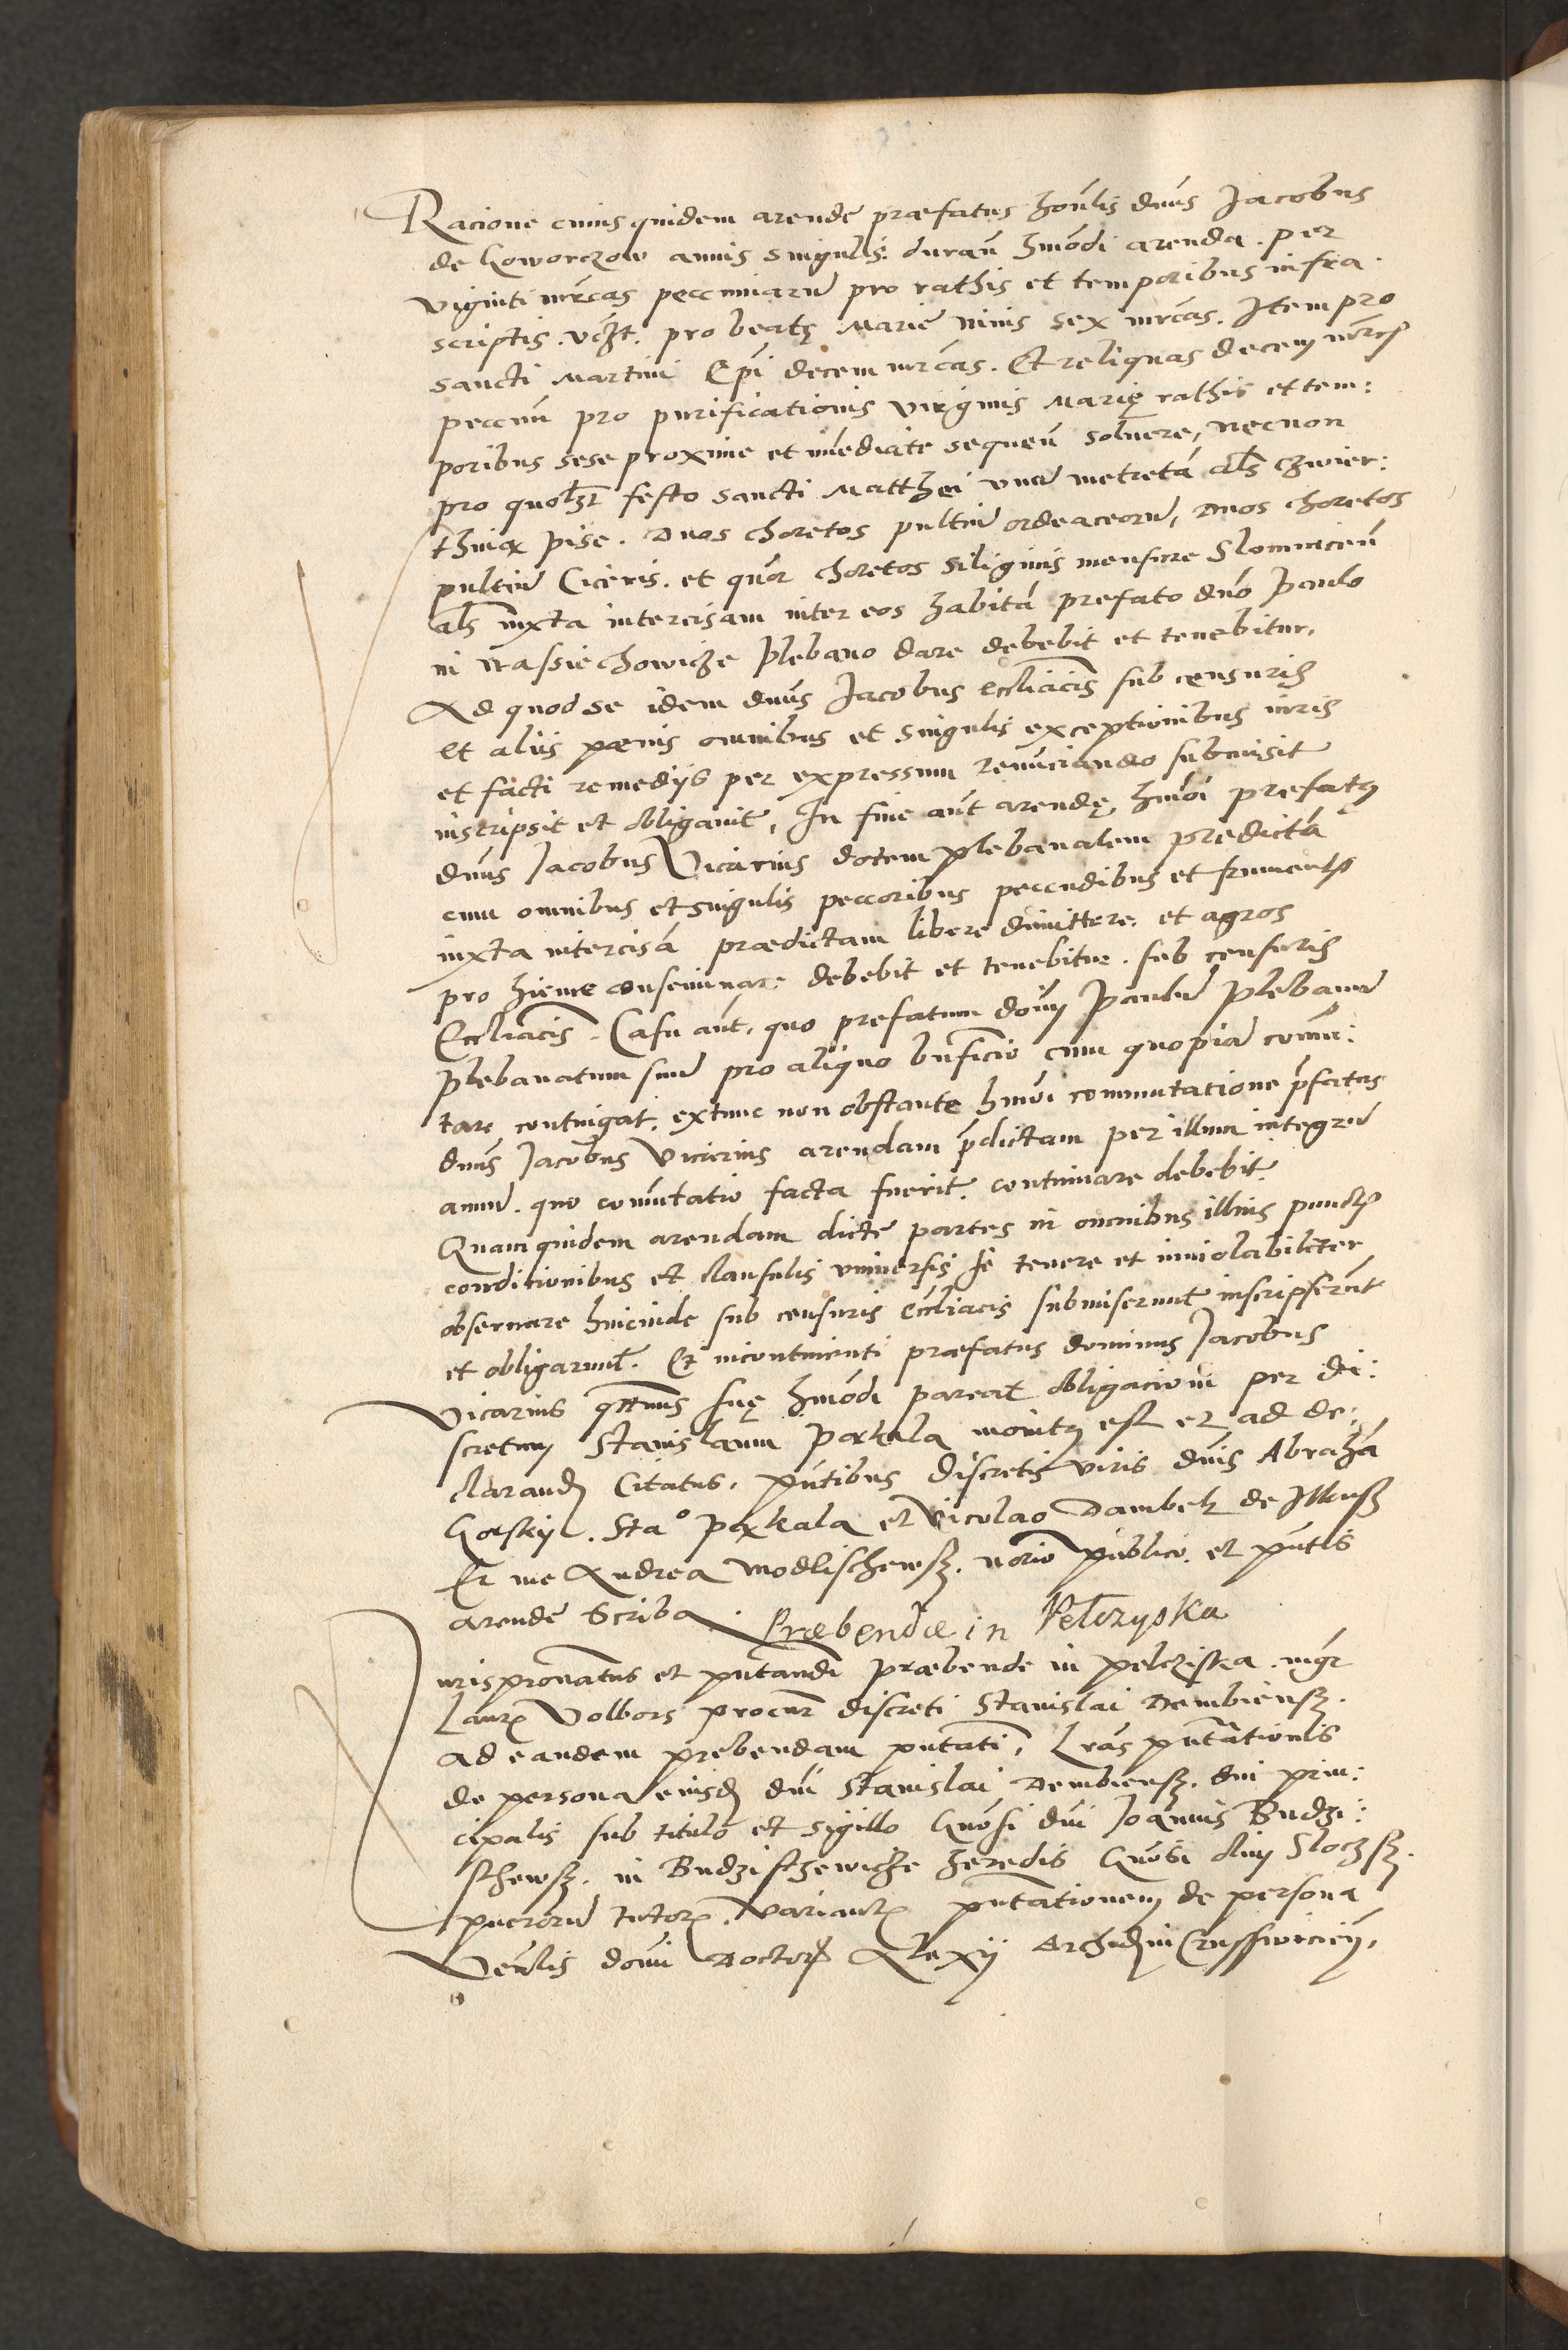 Racione cuius quidem arende præfatus honlis dnus Jacobus
de Goworczow annis singulis duran hmodi arenda. per
viginti mrcas peccuniaru pro rathis et temporibus infra
scriptis. vczt. pro beatę Marie nivis sex mrcas. Item pro
sancti Martini Epi decem mrcas. Et reliquas decem mrcas
peccun pro purificationis virginis Marię rathis et tem:
poribus sese proxime et imediate sequen solvere, necnon
pro quolzt festo sancti Matthei una metreta als czwier:
thnia pise. Duos choretos pultiu ordeaceoru, Duos choretos
pultiu Ciceris. et quor choretos siliginis mensure Slomnicen
als iuxta intercisam inter eos habita prefato dno Paulo
in Nassiechowicze plebano dare debebit et tenebitur.
Ad quod se idem dnus Jacobus eccliacis sub censuris
et aliis pænis omnibus et singulis exceptionibus iuris
et facti remediis per expressum renunciando submisit
inscripsit et obligavit, In fine aut arendę hmoi prefatus
dnus Jacobus Vicarius dotem plebanalem predicta
cum omnibus et singulis peccoribus peccudibus et frumentis
iuxta intercisa prædictam libere dimittere. et agros
pro hieme conseminare debebit et tenebitur. sub censuris
Eccliacis. Casu aut. quo prefatum domi Paulu plebanu
plebanatum suu pro aliquo bnficio cum quopia comu:
tare contingat. extunc non obstante hmoi commutatione pfatus
dnus Jacobus Vicarius arendam pdictam per illum integru
annu. quo comutatio facta fuerit. continuare debebit.
Quam quidem arendam dicte partes in omnibus illius punctis
conditionibus et clausulis universis se tenere et inviolabiliter
observare hincinde sub censuris eccliacis submiserunt inscripserunt
et obligarunt. Et incontinenti præfatus dominus Jacobus
Vicarius qtenus suę hmodi pareat obligacioni per di:
scretum Stanislaum Paxkala monitus est et ad de:
clarand Citatus, pntibus discretis viris dnis Abraha
Gorskij. Sta° Paxkala et Nicolao Dambek de Ilkusz
Et me Andrea Modlischewsz. notrio publico. et pntis
arende Scriba.
Præbendæ in Pełczyska
Jurispronatus et pntandi præbende in Pelcziska. mgr
Laur Volbors procur discreti Stanislai Dembiensz.
ad eandem prebendam pntati, Lras pntationis
de persona eiusd dni Stanislai Dembiensz. dni prin:
cipalis sub titulo et sigillo Gnosi dni Joannis Budzi:
schewsz. in Budzischewicze heredis Gnosi olim Slochsz.
pueroru tutor. Variantr pntationem de persona
Venlis domi Doctoris Alexij Archidni Crusswicien.